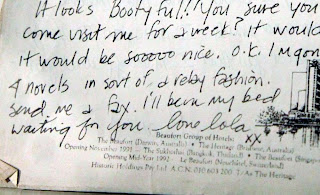 It looks Bootyful!! You sure you
Come visit me for a week? It would
it would be sooooo nice. O.K. I'm gon
4 novels in sort of a fashion.
Send me a fax. I'll be in my bed
waiting for you. love lola xx
Beaufort Group of Hotels:
The Beaufort (Darwin, Australia) • The Heritage (Brisbane, Australia)
Opening November 1991 — The Sukhothai (Bangkok, Thailand) • The Beaufort
Opening Mid-Year 1992 — Le Beaufort
Historic Holdings Pty Ltd A.C.N. 010 603 200 As The Heritage